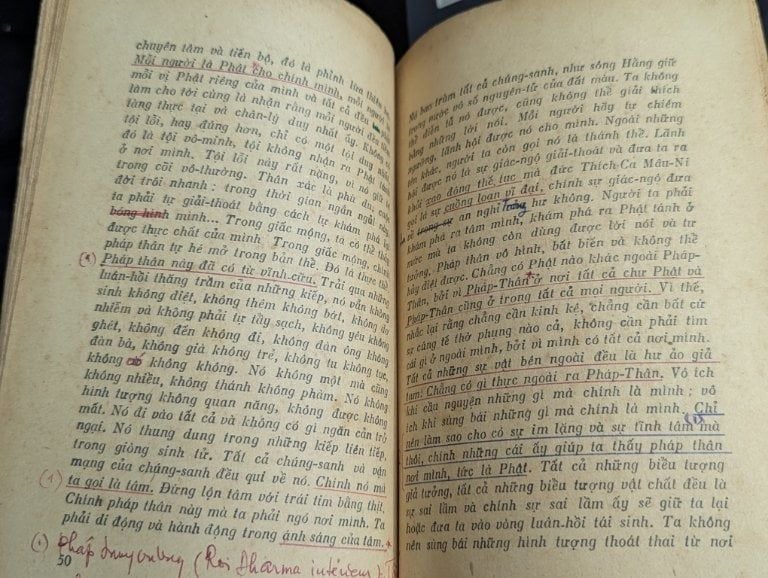 chuyên tâm và tiến bộ, đó là phỉnh lừa thiên
Mỗi người là Phật cho chính mình, mỗi người
mỗi vị Phật riêng của mình và tất cả đều
làm cho tới cùng là nhận rằng mỗi người đều
tàng thực tại và chân-lý duy nhất ấy. Không
tội lỗi, hay đúng hơn, chỉ có một tội duy nhất
đó là tội vô-minh, tội không nhận ra Phật tánh
ở nơi mình. Tội lỗi này rất nặng, vì nó giữ
trong cõi vô-thường. Thân xác là phù du, cuộc
đời trôi nhanh: trong thời gian ngắn ngủi này
ta phải tự giải-thoát bằng cách tự khám phá lại
bóng hình mình... Trong giấc mộng, ta có thể
được thực chất của mình Trong giấc mộng, chính
pháp thân tự hé mở trong bản thể. Đó là thực
Pháp thân này đã có từ vĩnh-cửu. Trải qua những
luân-hồi thăng trầm của những kiếp, nó vẫn không
sinh không diệt, không thêm không bớt, không dơ
nhiễm và không phải tự tẩy sạch, không yêu không
ghét, không đến không đi, không đàn ông không
đàn bà, không già không trẻ, không tu không tục,
không có không không. Nó không một mà cũng
không nhiều, không thánh không phàm. Nó không
hình tượng không quan năng, không được không
mất. Nó đi vào tất cả và không có gì ngăn cản trở
ngại. Nó thung dung trong những kiếp liên tiếp,
trong giòng sinh tử. Tất cả chúng-sanh và vận
mạng của chúng-sanh đều qui về nó. Chính nó mà
(1) ta gọi là tâm. Đừng lộn tâm với trái tim bằng thịt.
Chính pháp thân này mà ta phải ngó nơi mình. Ta
phải di động và hành động trong ánh sáng của tâm.
Pháp (Roi Dharma intérieur)
50
Nó bao trùm tất cả chúng-sanh, như sông Hằng giữ
trong nước vô số nguyên-tử của đất màu. Ta không
thể diễn tả nó được, cũng không thể giải thích
bằng những lời nói. Mỗi người hãy tự chiêm
ngưỡng, lãnh hội được nó cho mình. Ngoài những
tên khác, người ta còn gọi nó là thánh thể. Lãnh
hội được nó là sự giác-ngộ giải-thoát và đưa ta ra
khỏi xao động thế tục mà đức Thích-Ca Mâu-Ni
gọi là sự cuồng loạn vĩ đại, chính sự giác-ngộ đưa
trong sự an nghỉ Trong hư không. Người ta phải
khám phá ra tâm mình, khám phá ra Phật tánh ở
mức mà ta không còn dùng được lời nói và tư
tưởng. Pháp thân vô hình, bất biến và không thể
hủy diệt được. Chẳng có Phật nào khác ngoài Pháp-
Thân, bởi vì Pháp-Thân ở nơi tất cả chư Phật và
Pháp-Thân cũng ở trong tất cả mọi người. Vì thế,
nhắc lại rằng chẳng cần kinh kệ, chẳng cần bất cứ
sự cúng tế thờ phụng nào cả, không cần phải tìm
cái gì ở ngoài mình, bởi vì mình có tất cả nơi mình.
Tất cả những sự vật bên ngoài đều là hư ảo giả
tạm: Chẳng có gì thực ngoài ra Pháp-Thân. Vô ích
khi cầu nguyện những gì mà chính là mình; vô
ích khi sùng bái những gì mà chính là mình. Chỉ
nên làm sao cho có sự im lặng và sự tĩnh tâm mà
thôi, chính những cái ấy giúp ta thấy pháp thân
nơi mình, tức là Phật. Tất cả những biểu tượng
giả tưởng, tất cả những biểu tượng vật chất đều là
sự sai lầm và chính sự sai lầm ấy sẽ giữ ta lại
hoặc đưa ta vào vòng luân-hồi tái sinh. Ta không
nên sùng bái những hình tượng thoát thai từ nơi